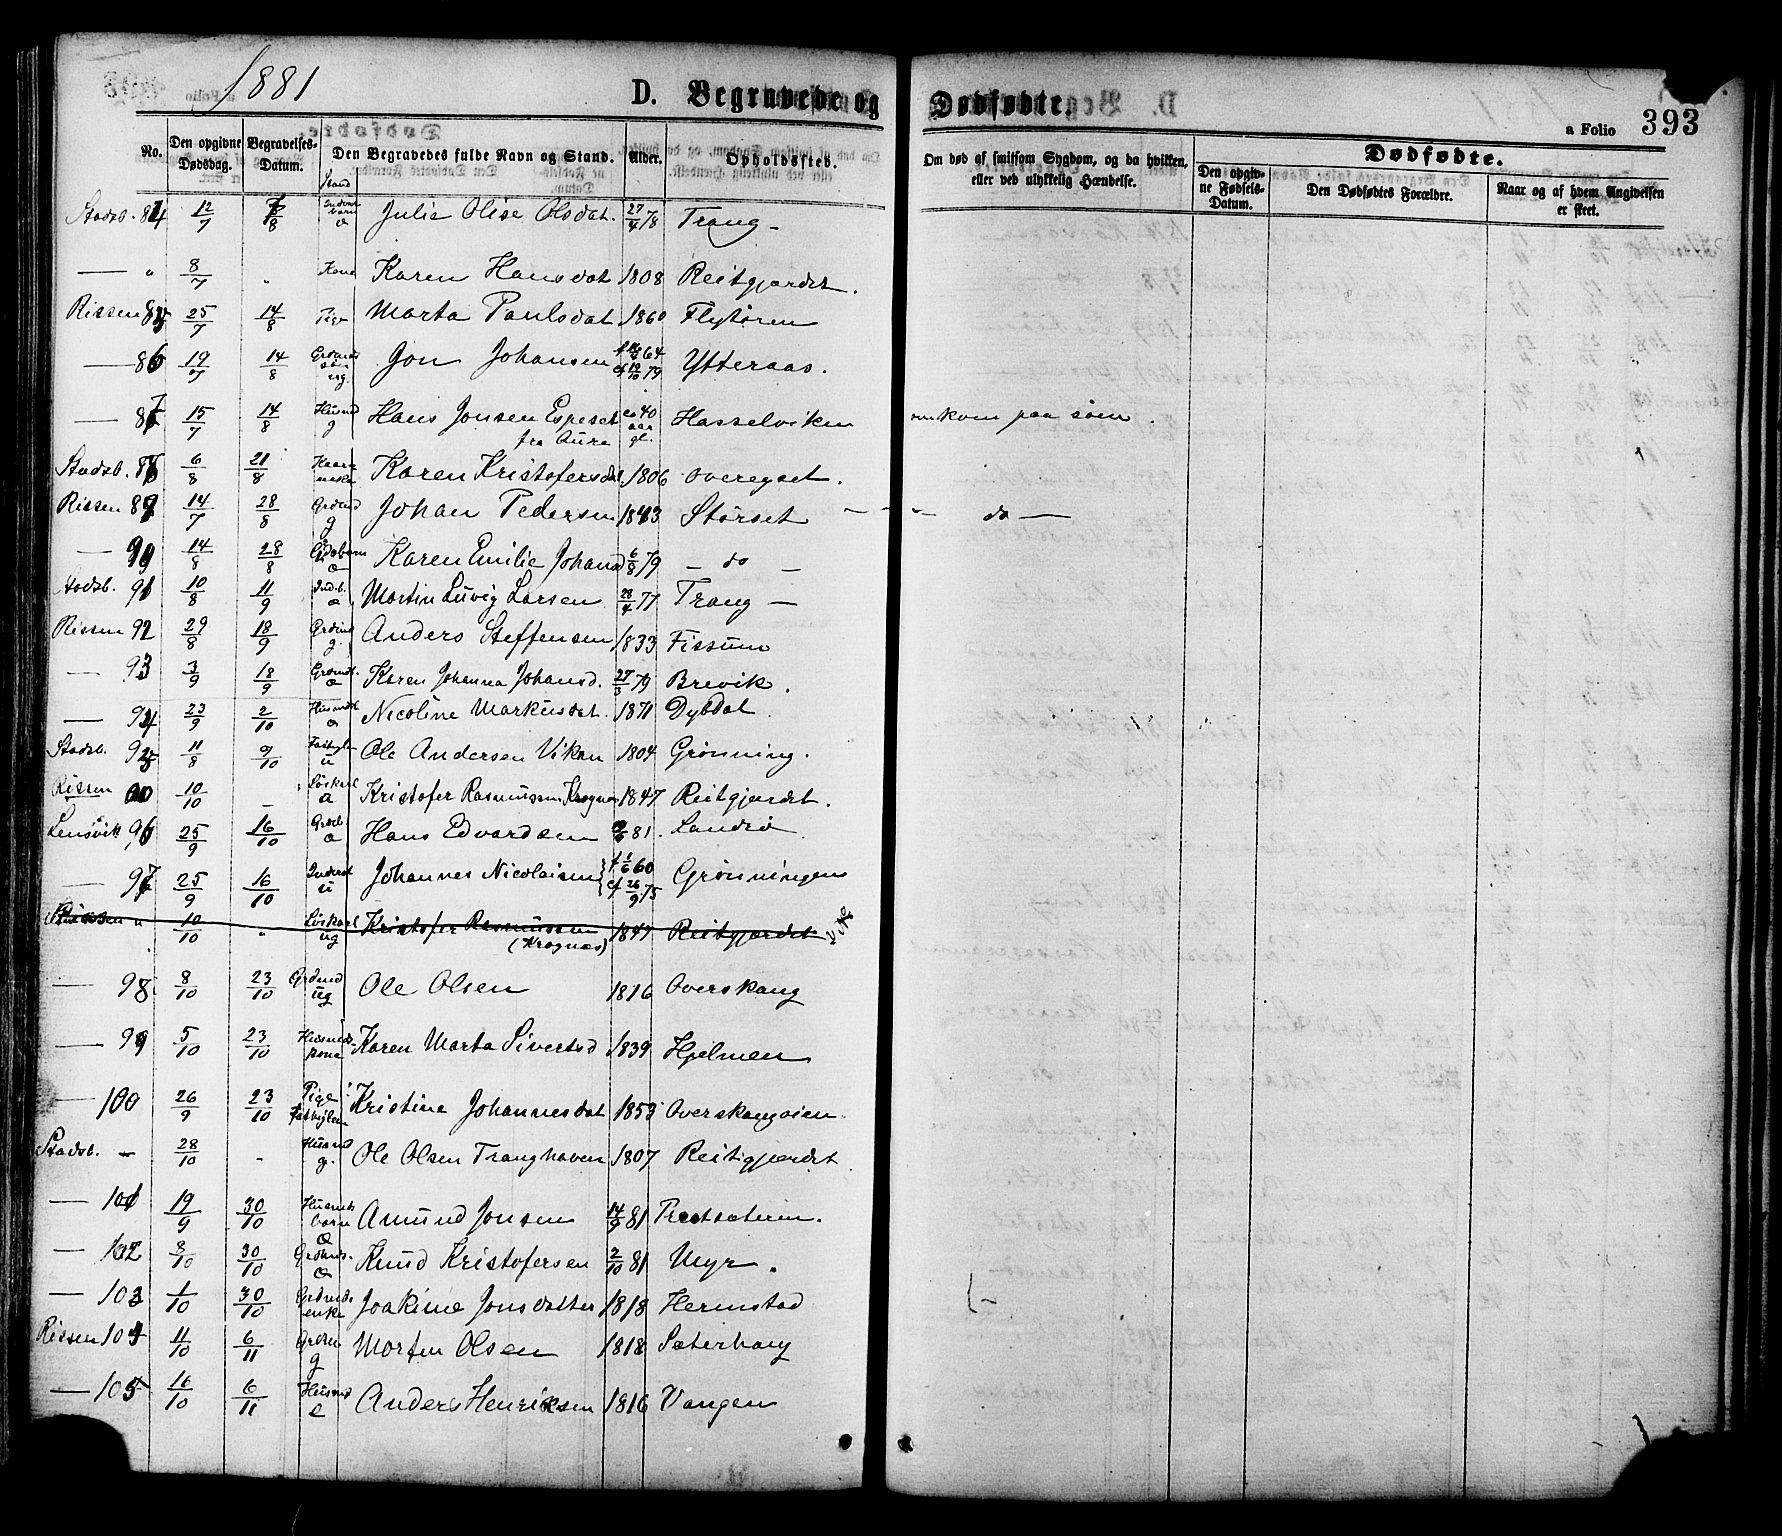 1881
D. Begravede og Dødfødte.
a Folio 393
No. Den opgivne Dødsdag. Begravelses-Datum. Den Begravedes fulde Navn og Stand. Alder. Opholdssted. Om død af smitsom Sygdom, og da hvilken, eller ved ulykkelig Hændelse. Dødfødte.
Den opgivne Fødsels-Datum. Den Dødfødtes Forældre. Naar og af hvem Angivelsen er skeet.
Stand
Stadsb. 84 12/7 7/8 Julie Olise Olsdat. 27/4 78 Trang
— " 8/7 " Kone Karen Hansdat 1808 Reitgjærdet.
Rissen 85 25/7 14/8 Pige Marta Paulsdat 1860 Flytøren
— 86 19/7 14/8 Jon Johansen 64 79 Ytteraas.
— 87 15/7 14/8 Husmd g Hans Jonsen Espeset fra Aure ca 40 aar gl. Hasselviken omkom paa søen.
Stadsb. 88 6/8 21/8 Karen Kristofersdat 1806 Overegset.
Rissen 89 14/7 28/8 Grdmd g Johan Pedersen 1843 Størset — " — do —
— 90 14/8 28/8 Karen Emilie Johansd 6/8 79 — do —
Stadsb. 91 10/8 11/9 Indb. a Martin Luvig Larsen 28/4 77 Trang —
Rissen 92 29/8 18/9 Grdmd g. Anders Steffensen 1833 Fissum
— 93 3/9 18/9 a Karen Johanna Johansd. 27/3 79 Brevik.
— 94 23/9 2/10 Husmdb a Nicoline Markusdat. 1871 Dybdal.
Stadsb. 95 11/8 9/10 u Ole Andersen Vikan 1804 Grønning.
Rissen 10/10 — Løskarl a Kristofer Rasmussen Krognæs 1847 Reitgjærdet.
Lensvik 96 25/9 16/10 a Hans Edvardsen 81. Landrø
— 97 25/9 16/10 Inderst u Johannes Nicolaisen f 1/6 60 cf 26/9 75 Grønningen
Rissen " 10/10 " Løskarl ug Kristofer Rasmussen (Krognæs) 1847 Reitgjærdet
— 98 8/10 23/10 Grdmd ug Ole Olsen 1816 Overskaug
— 99 5/10 23/10 Husmdskone Karen Marta Sivertsd 1839 Hjelmen
— 100 26/9 23/10 Pige Kristine Johannesdat 1853 Overskaugøien
Stadsb. — 28/10 - Husmd g. Ole Olsen Tranghaven 1807 Reitgjærdet
— 101 19/9 30/10 Husmdsbarn a Amund Jonsen 14/9 81
— 102 8/10 30/10 Grdmds. a Knud Kristofersen 2/10 81 Myr.
— 103 1/10 30/10 Grdmds enke Joakime Jonsdatter 1818 Hermstad
Rissen 104 11/10 6/11 g Morten Olsen 1818 Sæterhaug
— 105 16/10 6/11 Husmd e Anders Henriksen 1816 Vangen